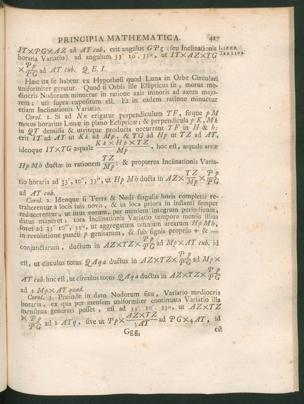 PRINCIPIA MATHEMATICA. 427
IT×PG×AZ ad AT cub. erit angulus GPg (seu Inclinationis
LIBER TERTIUS.
horariæ Variatio) ad angulum 33″. 10‴. 33iv, ut IT×AZ×TG
×Pp/PG ad AT cub. Q. E. I.
Hæc ita se habent ex Hypothesi quod Luna in Orbe Circulari
uniformiter gyratur. Quod si Orbis ille Ellipticus sit, motus me-
diocris Nodorum minuetur in ratione axis minoris ad axem majo-
rem; uti supra expositum est. Et in eadem ratione minuetur
etiam Inclinationis Variatio.
Corol. 1. Si ad Nn erigatur perpendiculum TF, sitque pM
motus horarius Lunæ in plano Eclipticæ; & perpendicula pK, Mk
in QT demissa & utrinque producta occurrant TF in H & h:
erit IT ad AT ut Kk ad Mp, & TG ad Hp ut TZ ad AT,
ideoque IT×TG æquale Kk×Hp×TZ/Mp, hoc est, æquale areæ
HpMh ductæ in rationem TZ/Mp: & propterea Inclinationis Varia-
tio horaria ad 33″. 10‴. 33iv, ut HpMh ducta in AZ×TZ/Mp×Pp/PG
ad AT cub.
Corol. 2. Ideoque si Terra & Nodi singulis horis completis re-
traherentur a locis suis novis, & in loca priora in instanti semper
reducerentur, ut situs eorum, per mensem integrum periodicum,
datus maneret; tota Inclinationis Variatio tempore mensis illius
foret ad 33″. 10‴. 33iv, ut aggregatum omnium arearum HpMh,
in revolutione puncti p genitarum, & sub signis propriis + & −
conjunctarum, ductum in AZ×TZ×Pp/PG ad Mp×AT cub. id
est, ut circulus totus QAqa ductus in AZ×TZ×Pp/PG ad Mp×
AT cub. hoc est, ut circulus totus QAqa ductus in AZ×TZ×Pp/PG
ad 2 Mp×AT quad.
Corol. 3. Proinde in dato Nodorum situ, Variatio mediocris
horaria, ex qua per mensem uniformiter continuata Variatio illa
menstrua generari posset, est ad 33″. 10‴. 33iv, ut AZ×TZ
×Pp/PG ad 2 ATq, sive ut Pp×AZ×TZ/½AT ad PG×4AT, id
Ggg3 est